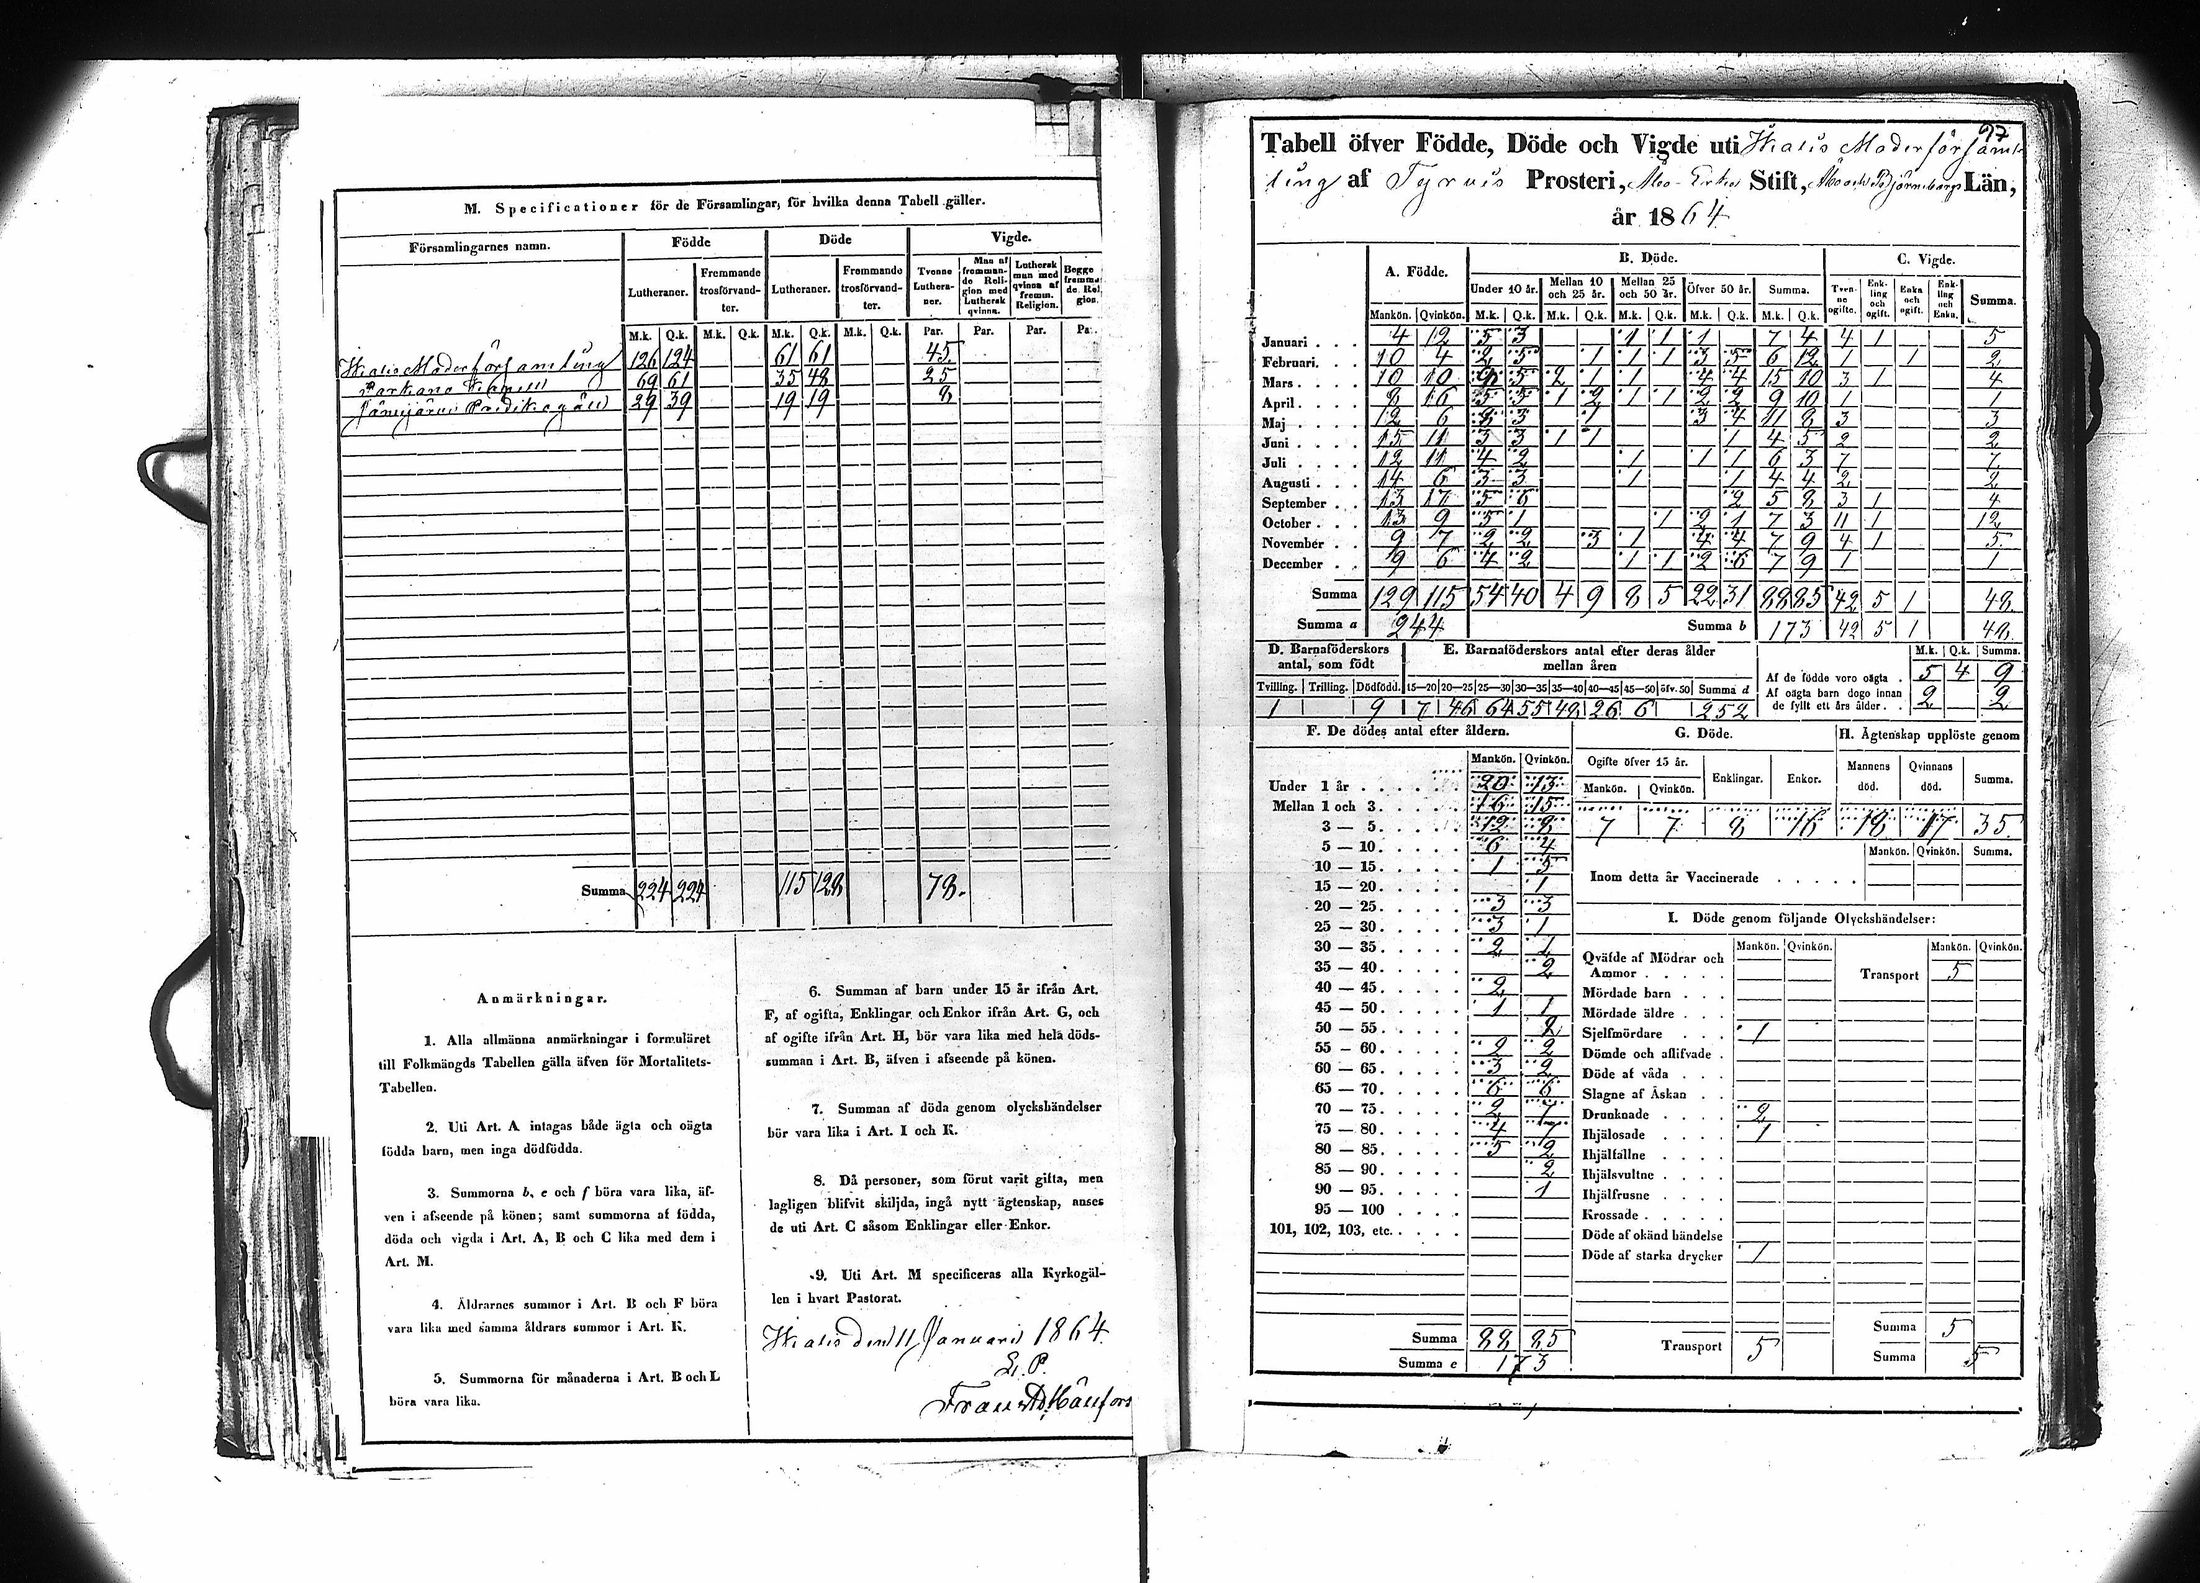 M. Specificationer för de Församlingar, för hvilka denna Tabell gäller.
Församlingarnes namn. Födde Döde Vigde.
Lutheraner. Fremmande trosförvandter. Lutheraner. Fremmande trosförvandter. Tvenne Lutheraner. Man af fremmande Religion med Luthersk qvinna. Luthersk man med qvinna af fremm. Religion. Begge fremmande Religion.
M.k. Q.k. M.k. Q.k. M.k. Q.k. M.k. Q.k. Par. Par. Par. Par.
Ikalis Moderförsamling 126 124 61 61 45
Parkano Kapell 69 61 35 48 25
Jämijärvi Predikogäld 29 39 19 19 8
Summa 224 224 115 128 78.
Anmärkningar.
1. Alla allmänna anmärkningar i formuläret
till Folkmängds Tabellen gälla äfven för Mortalitets-
Tabellen.
2. Uti Art. A intagas både ägta och oägta
födda barn, men inga dödfödda.
3. Summorna b, e och f böra vara lika, äf-
ven i afseende på könen; samt summorna af födda,
döda och vigda i Art. A, B och C lika med dem i
Art. M.
4. Åldrarnes summor i Art. B och F böra
vara lika med samma åldrars summor i Art. K.
5. Summorna för månaderna i Art. B och L
böra vara lika.
6. Summan af barn under 15 år ifrån Art.
F, af ogifta, Enklingar och Enkor ifrån Art. G, och
af ogifte ifrån Art. H, bör vara lika med hela döds-
summan i Art. B, äfven i afseende på könen.
7. Summan af döda genom olyckshändelser
bör vara lika i Art. I och K.
8. Då personer, som förut varit gifta, men
lagligen blifvit skiljda, ingå nytt ägtenskap, anses
de uti Art. C såsom Enklingar eller Enkor.
9. Uti Art. M specificeras alla Kyrkogäl-
len i hvart Pastorat.
Ikalis den 11 Januari 1864.
97
Tabell öfver Födde, Döde och Vigde uti Ikalis Moderförsam-
ling af Tyrvis Prosteri, Åbo Erke Stift, Åbo och Björneborgs Län,
år 1864
A. Födde. B. Döde. C. Vigde.
Under 10 år. Mellan 10 och 25 år. Mellan 25 och 50 år. Öfver 50 år. Summa. Tvenne ogifte. Enkling och ogift. Enka och ogift. Enkling och Enka. Summa.
Mankön. Qvinkön. M.k. Q.k. M.k. Q.k. M.k. Q.k. M.k. Q.k. M.k. Q.k.
Januari 4 12 5 3 1 1 1 7 4 4 1 5
Februari 10 4 2 5 1 1 1 3 5 6 12 1 1 2
Mars 10 10 5 2 1 1 4 4 15 10 3 1 4
April 8 16 5 5 1 2 1 1 2 2 9 10 1 1
Maj 12 6 8 3 1 3 4 11 8 3 3
Juni 15 11 3 3 1 1 1 4 5 2 2
Juli 12 11 4 2 1 1 1 6 3 7 7
Augusti 14 6 3 3 1 1 4 4 2 2
September 13 17 5 6 2 5 8 3 1 4
October 13 9 5 1 1 2 1 7 3 11 1 12
November 9 7 2 2 3 1 4 4 7 9 4 1 5
December 9 6 4 2 1 1 2 6 7 9 1 1
Summa 129 115 54 40 4 9 8 5 22 31 88 85 42 5 1 48
Summa a 244 Summa b 173 42 5 1 48
D. Barnaföderskors antal, som födt
E. Barnaföderskors antal efter deras ålder mellan åren
M.k. Q.k. Summa.
Tvilling. Trilling. Dödfödd. 15—20 20—25 25—30 30—35 35—40 40—45 45—50 öfv. 50 Summa d
1 9 7 46 64 55 48 26 6 252
Af de födde voro oägta . 5 4 9
Af oägta barn dogo innan de fyllt ett års ålder . . 2 2
F. De dödes antal efter åldern.
Mankön. Qvinkön.
Under 1 år 20 13
Mellan 1 och 3 16 15
3 — 5 12 8
5 — 10 6 4
10 — 15 1 5
15 — 20 1
20 — 25 3 3
25 — 30 3 1
30 — 35 2 1
35 — 40 2
40 — 45 2
45 — 50 1 1
50 — 55
55 — 60 2 2
60 — 65 3 2
65 — 70 6 6
70 — 75 2 7
75 — 80 4 7
80 — 85 5 2
85 — 90 2
90 — 95 1
95 — 100
101, 102, 103, etc.
Summa 88 85
Summa e 173
G. Döde.
Ogifte öfver 15 år. Enklingar. Enkor.
Mankön. Qvinkön.
7 7 8 16
H. Ägtenskap upplöste genom
Mannens död. Qvinnans död. Summa.
18 17 35
Mankön. Qvinkön. Summa.
Inom detta år Vaccinerade
I. Döde genom följande Olyckshändelser:
Mankön. Qvinkön. Mankön. Qvinkön.
Qväfde af Mödrar och Ammor
Mördade barn
Mördade äldre
Sjelfmördare 1
Dömde och aflifvade
Döde af våda
Slagne af Åskan
Drunknade 2
Ihjälosade 1
Ihjälfallne
Ihjälsvultne
Ihjälfrusne
Krossade
Döde af okänd händelse
Döde af starka drycker 1
Transport 5
Transport 5
Summa 5
Summa 5